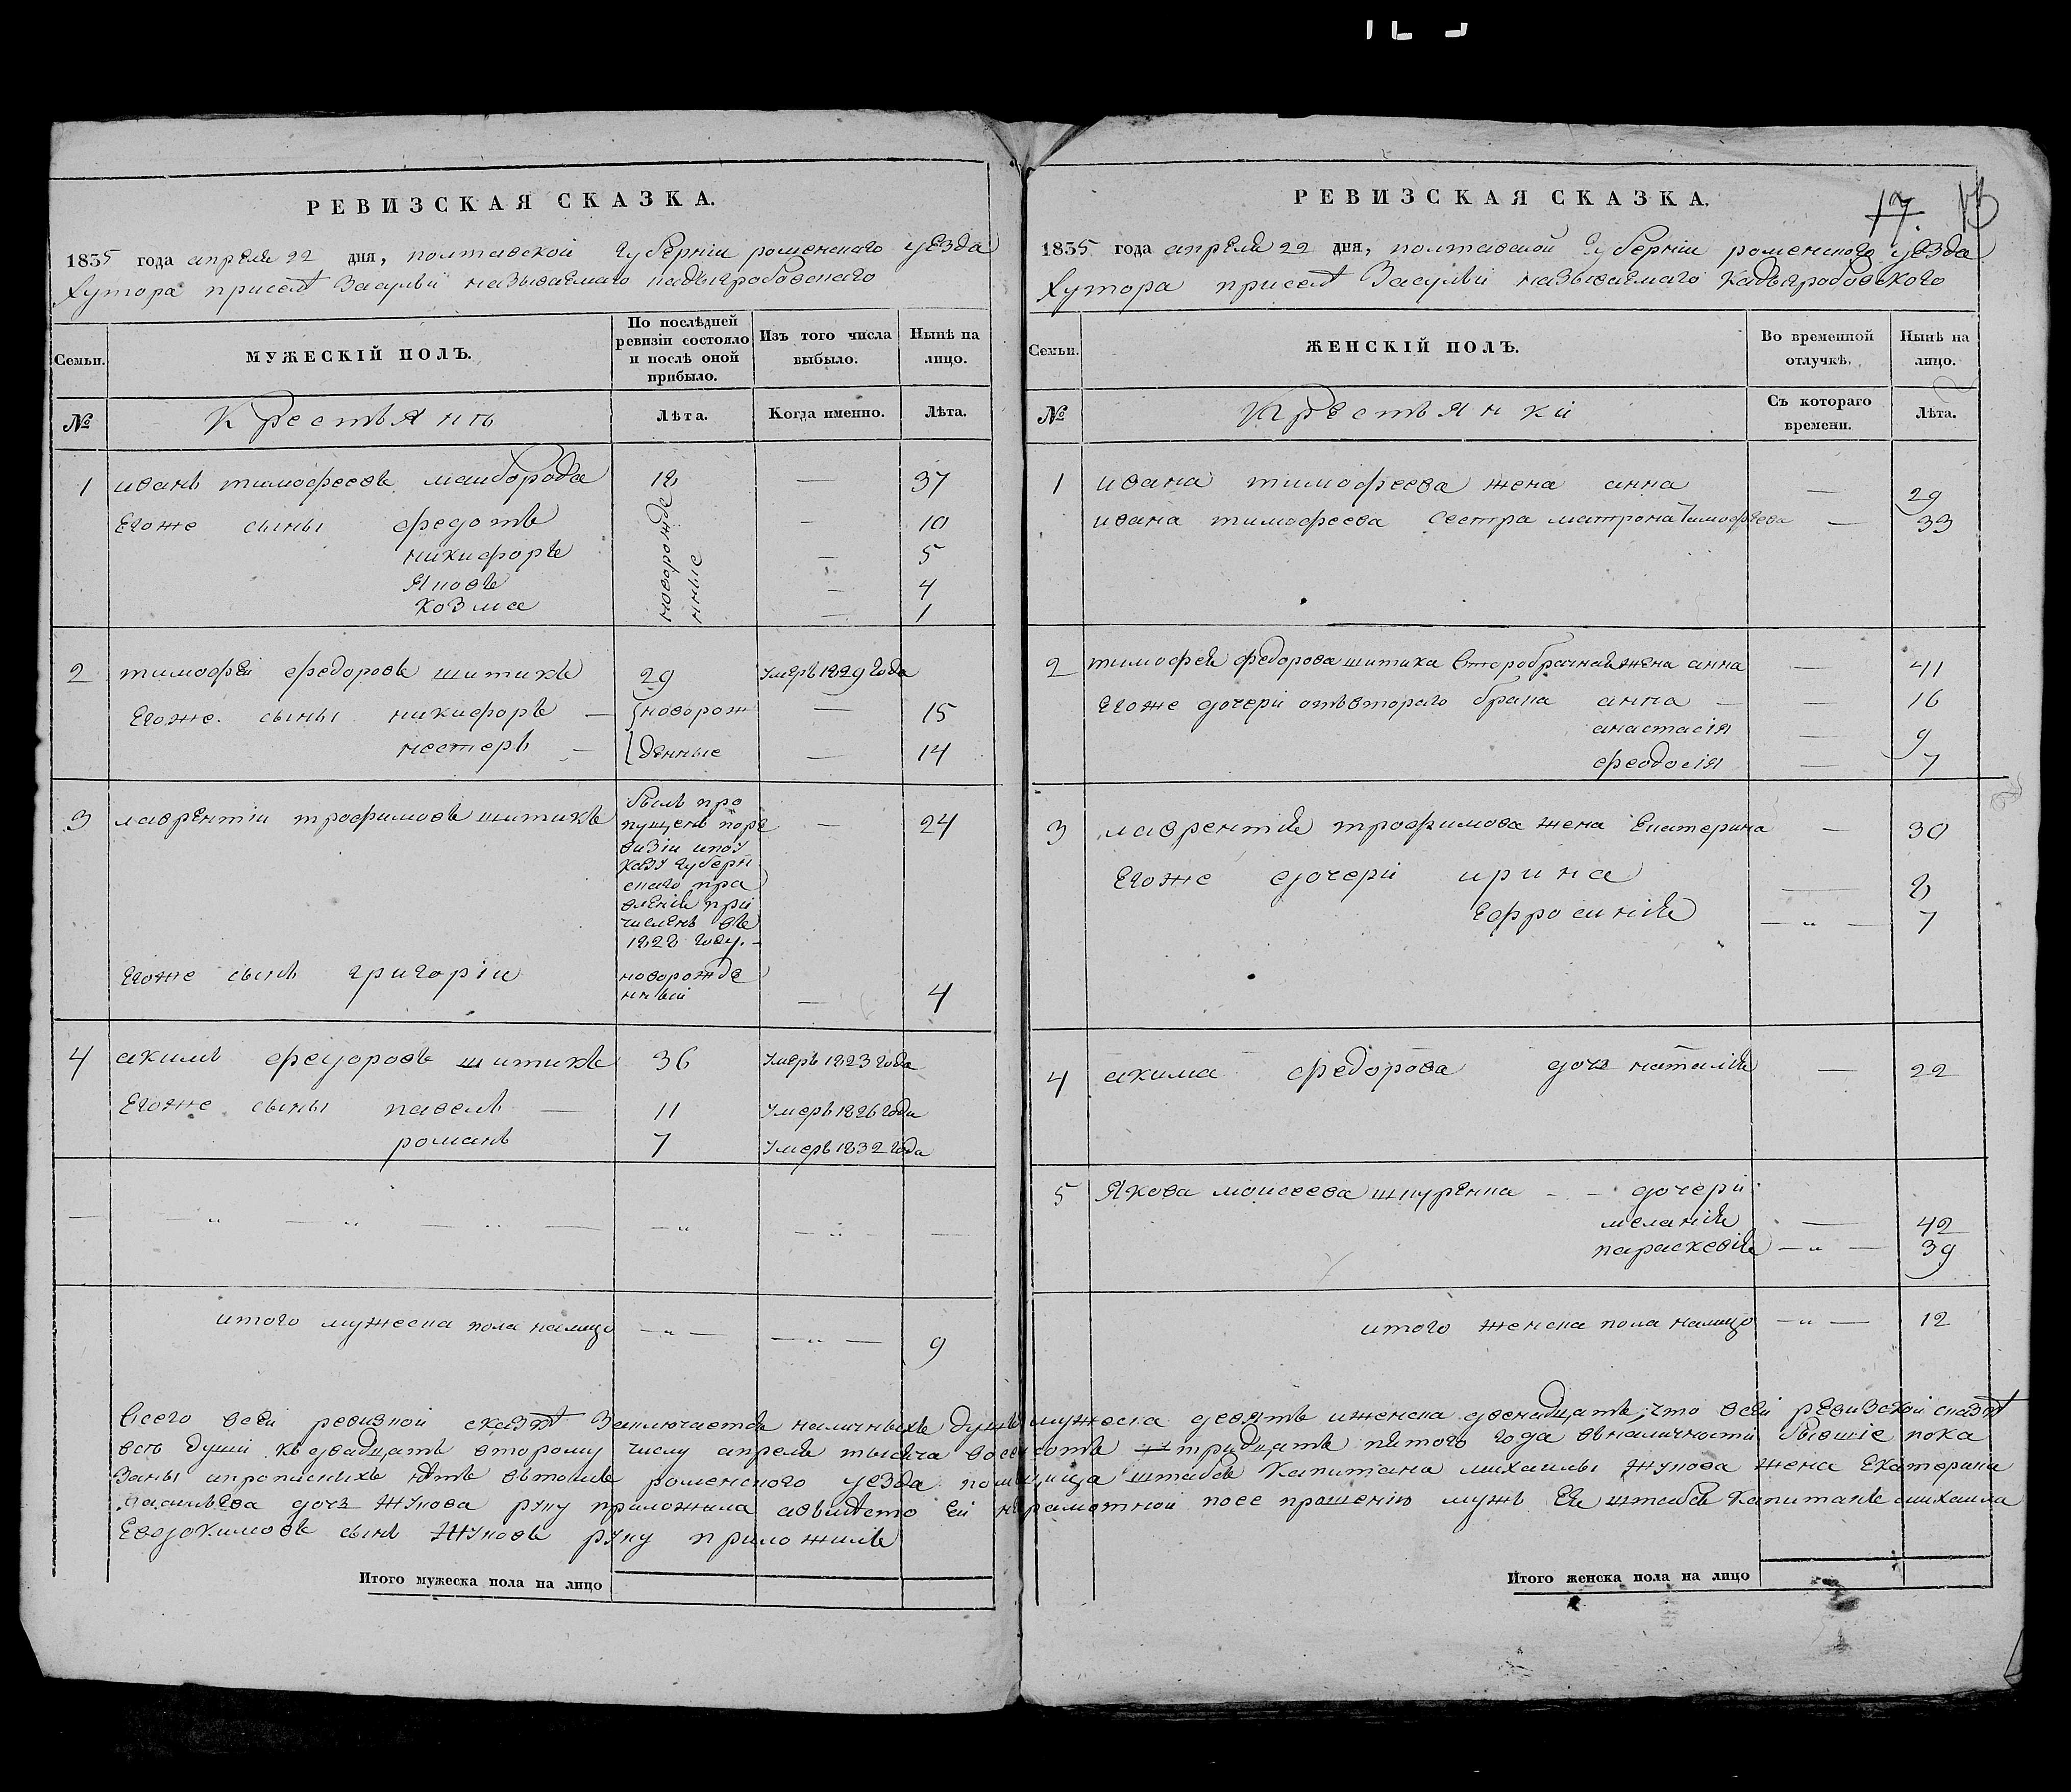 РЕВИЗСКАЯ СКАЗКА.
1835 года апреля 22 дня, полтавской губерніи роменскаго уезда
хутора приселѣ Засульи называемаго
Семьи.
МУЖЕСКІЙ ПОЛЪ.
По послѣдней ревизіи состояло и послѣ оной прибыло.
Изъ того числа выбыло.
Нынѣ на лицо.
№ Крестьянъ Лѣта. Когда именно. Лѣта.
1 иванъ тимофеевъ маиборода 18 — 37
Егоже сыны федотъ — 10
никифоръ — 5
Яковъ — 4
Козма — 1
новорожде
нные
2 тимофей федоровъ шитикъ 29 Умеръ 1829 года
Егоже сыны никифоръ — новорож — 15
нестеръ — денные — 14
3 лаврентіи трофимовъ шитикъ — 24
былъ про
пущенъ поре
визіи ипоу
казу губерн
скаго пра
вленія при
численъ въ
1828 году. —
Егоже сынъ григоріи новорожде
нныи — 4
4 акимъ федоровъ шитикъ 36 Умеръ 1823 года
Егоже сыны павелъ — 11 Умеръ 1826 года
романъ 7 Умеръ 1832 года
итого мужеска пола налицо — „ — — „ — 9
РЕВИЗСКАЯ СКАЗКА.
17.
1835 года апреля 22 дня, полтавской губерніи роменского уезда
хутора приселѣ Засульи называемаго
Семьи.
ЖЕНСКІЙ ПОЛЪ.
Во временной отлучкѣ.
Нынѣ на лицо.
№ Крестьянки Съ котораго времени. Лѣта.
1 ивана тимофеева жена анна — 29
ивана тимофеева сестра матрона тимофеева — 33
2 тимофея федорова шитика второбрачная жена анна — 41
Егоже дочери отъвтораго брака анна — — 16
анастасія — 9
феодосія — 7
3 лаврентія трофимова жена Екатерина — 30
Егоже дочери ирина — 8
Ефросинія — „ — 7
4 акима федорова дочь наталія — 22
5 Якова моисеева шкуренка — - дочери
меланія — 42
параскевія — „ — 39
итого женска пола налицо — „ — 12
Всего всеи ревизкой сказкѣ Заключается наличныхъ душъ мужеска девять иженска двенадцать, что всеи ревизской сказкѣ
всѣ души къ двадцать второму числу апреля тысяча восемсотъ тридцать пятого года вналичности бывшіе пока
Заны ипрописныхъ нѣтъ втомъ роменского уезда помѣщица штабсъ Капитана михаилы Жукова жена Екатерина
васильева дочь Жукова руку приложила авмѣсто Ей неграмотной поее прошенію мужъ Ея штабсъ Капитанъ михаила
Евдокимовъ сынъ Жуковъ руку приложилъ
Итого мужеска пола на лицо
Итого женска пола на лицо